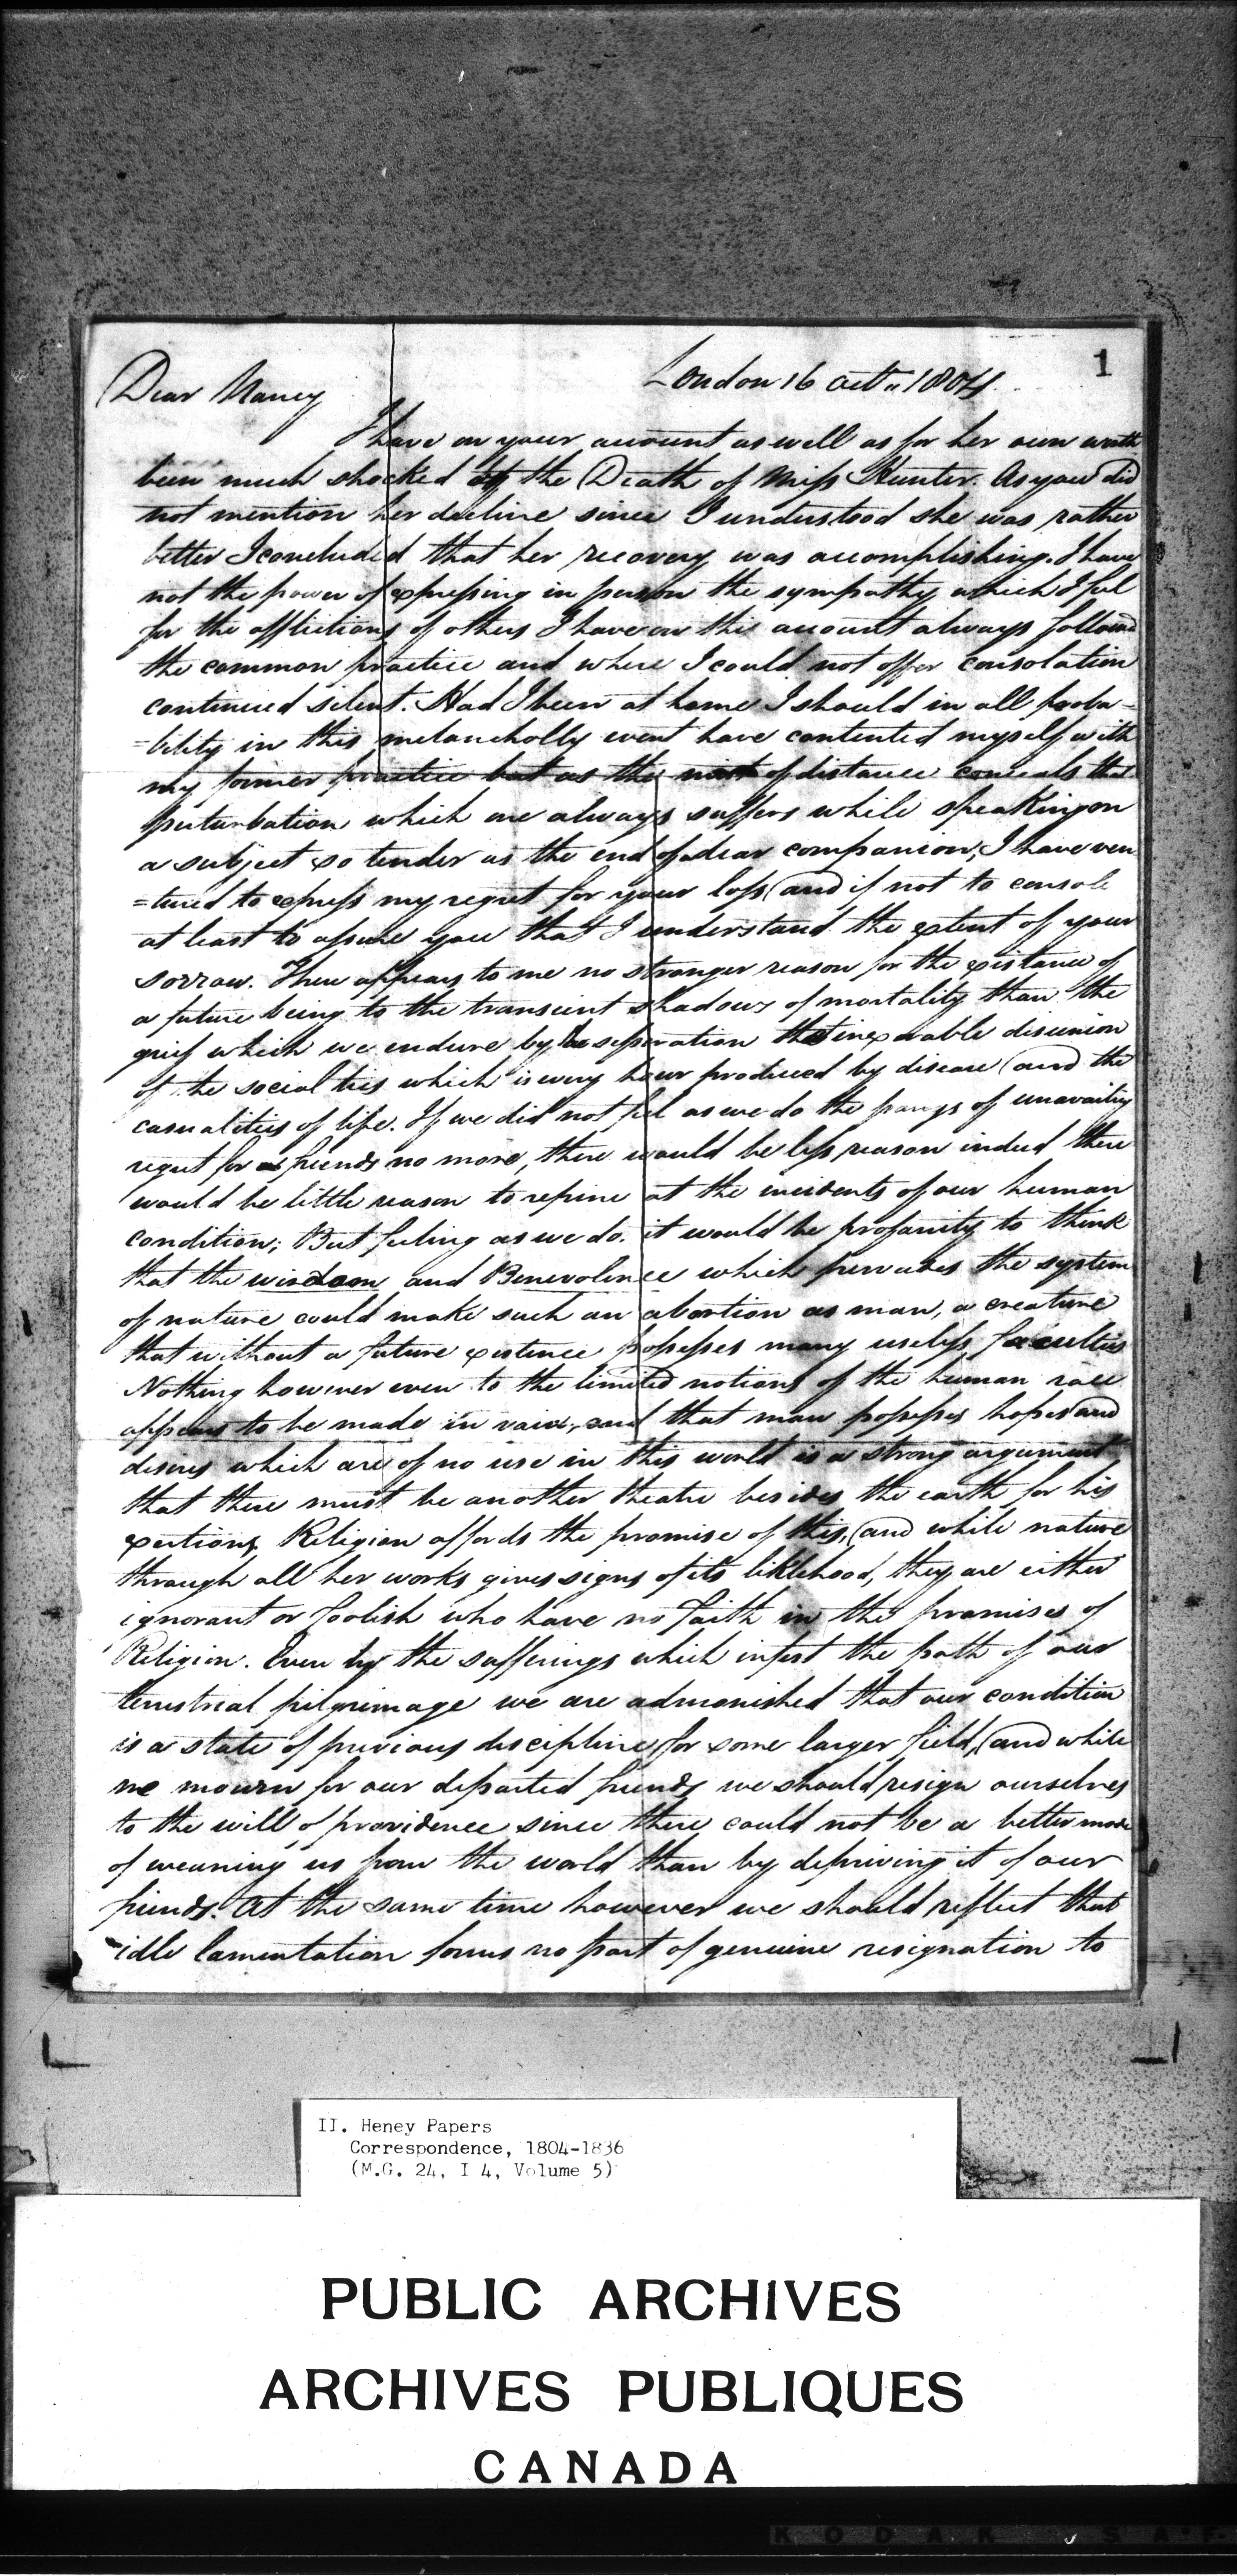 1
London 16 Oct 1804
Dear Nancy
I have on your account as well as for her own worth
been much shocked at the Death of Miss Hunter. As you did
not mention her decline since I understood she was rather
better I concluded that her recovery was accomplishing. I have
not the power of expressing in person the sympathy which I feel
for the afflictions of others I have on this account always followed
the common practice and where I could not offer consolation
continued silent. Had I been at home I should in all proba-
=bility in this melancholly event have contented myself with
my former practice but as the of distance conceals that
perturbation which one always suffers while speaking on
a subject so tender as the end of a dear companion, I have ven
=tured to express my regret for your loss and if not to console
at least to assure you that I understand the extent of your
sorrow. There appears to me no stronger reason for the existance of
a future being to the transient shadows of mortality than the
grief which we endure by the separation that inexorable disunion
of the social ties which is every hour produced by disease and the
casualities of life. If we did not feel as we do the pangs of unavailing
regret for friends no more, there would be less reason indeed there
would be little reason to repine at the incidents of our human
condition; But feeling as we do. it would be profanity to think
that the wisdom and Benevolence which pervades the system
of nature could make such an abortion as man, a creature
that without a future existence possesses many useless facculties
Nothing however even to the limited notions of the human race
appears to be made in vain, and that man possesses hopes and
desires which are of no use in this world is a strong argument
that there must be another theatre besides the earth for his
exertions, Religion affords the promise of this, and while nature
through all her works gives signs of its liklehood, they are either
ignorant or foolish who have no faith in the promises of
Religion. Even by the sufferings which infest the path of our
terrestrial pilgrimage we are admonished that our condition
is a state of previous discipline for some larger field, and while
we mourn for our departed friends we should resign ourselves
to the will of providence since there could not be a better mode
of weaning us from the world than by depriving it of our
friends. At the same time however we should reflect that
idle lamentation forms no part of genuine resignation to
II. Heney Papers
Correspondence, 1804-1836
(M.G. 24, I 4, Volume 5)
PUBLIC ARCHIVES
ARCHIVES PUBLIQUES
CANADA
KODAK SAF